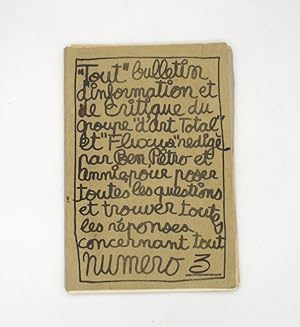 "Tout" bulletin
d'information et
de critique du
groupe "d'art Total"
et "Fluxus" redigé
par Ben, Pétro et
annie, pour poser
toutes les questions
et trouver toutes
les réponses
concernant tout
numero 3